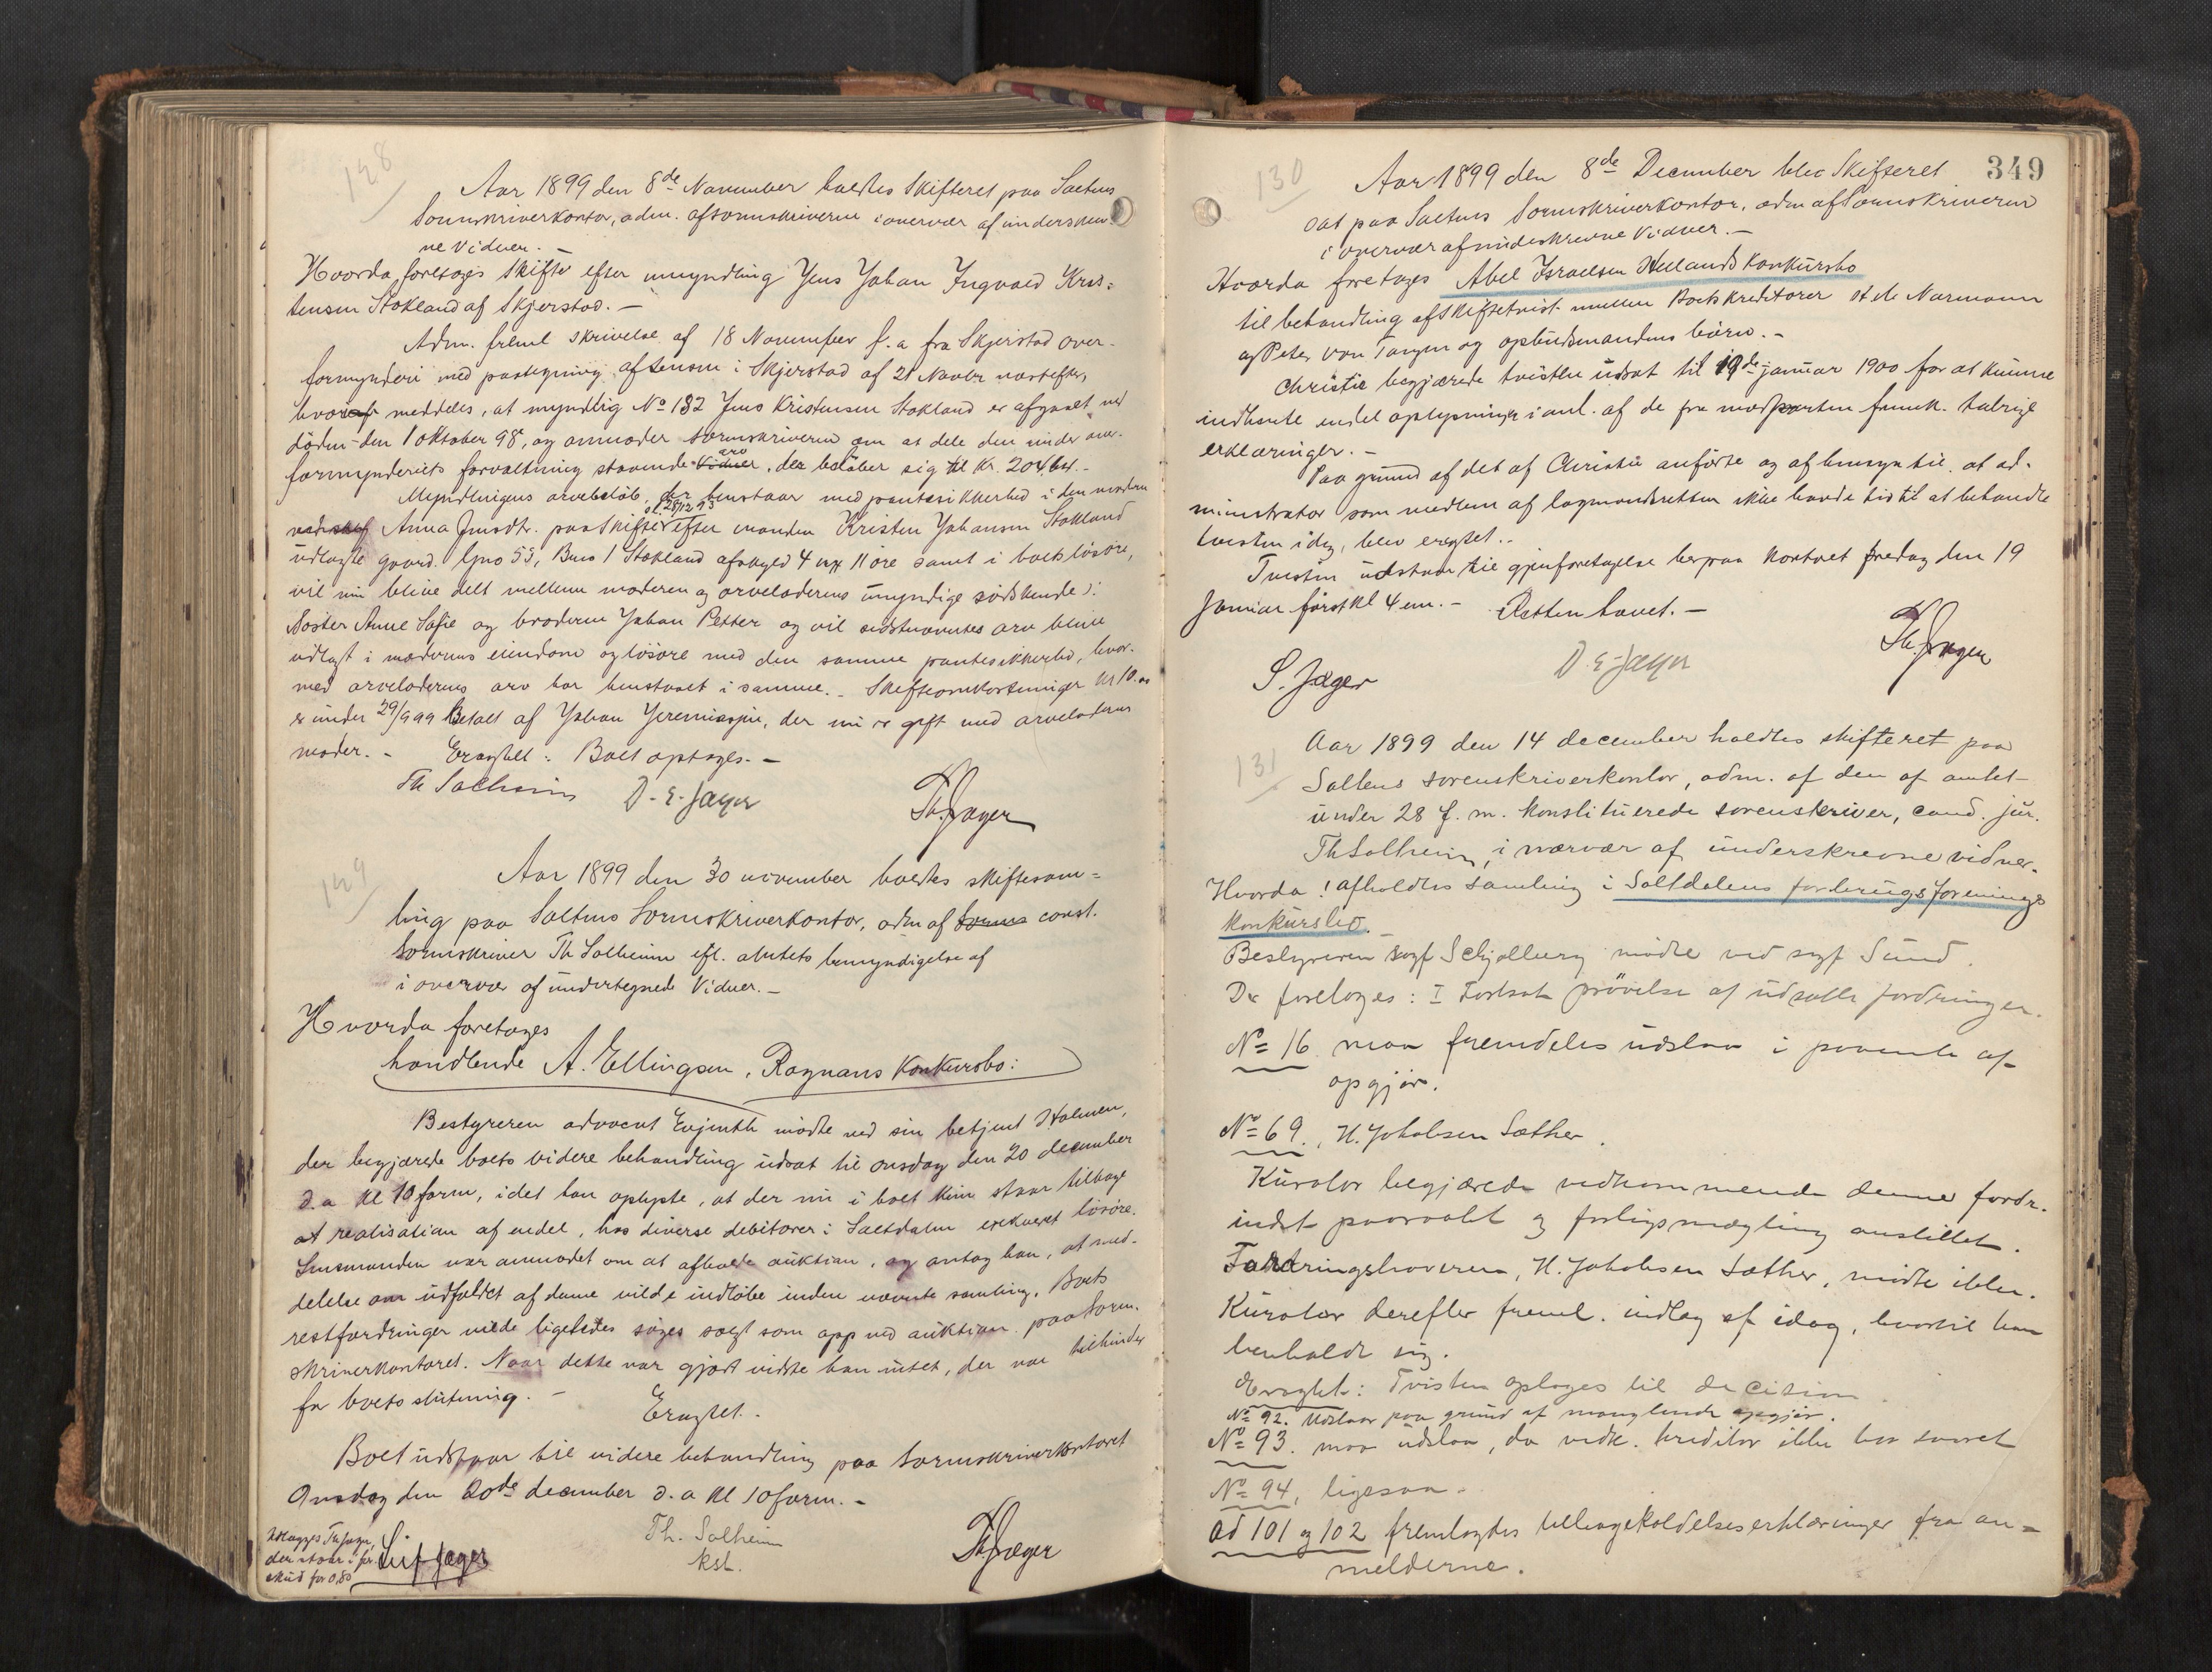 128
Aar 1899 den 8de November holdtes Skifteret paa Saltens
Sorenskriverkontor, adm. af sorenskriveren i overvær af underskrev-
ne Vidner. —
Hvorda foretoges Skifte efter umyndling Jens Johan Ingvald Kris-
tensen Stokland af Skjerstad. —
Adm. freml skrivelse af 18 November f. a fra Skjerstad over-
formynderi med paategning af lensm i Skjerstad af 21 Novbr næstefter,
hvori meddeles, at myndling No 132 Jens Kristensen Stokland er afgaaet ved
döden den 1 oktober 98, og anmoder sorenskriveren om at dele den under over-
formynderiets forvaltning staaende Vidner arv, der belöber sig til Kr. 204,64. -
Myndlingens arvebelöb, der henstaar med pantesikkerhed i den moderen
Anna Jensdtr. paa Skifte af 28/12 93 efter manden Kristen Johansen Stokland
udlagte gaard Gno 55, Bno 1 Stokland afskyld 4 11 öre samt i boets lösöre,
vil nu blive delt mellem moderen og arveladerens umyndige södskende):
söster Anne Sofie og broderen Johan Petter og vil sidstnævntes arv blive
udlagt i moderens eiendom og lösöre med den samme pantesikkerhed, hvor-
med arveladerens arv har henstaaet i samme. - Skifteomkostninger Kr 10.00
er under 29/9 99 Betalt af Johan Jeremiassen, der nu er gift med arveladerens
moder. - Eragtet: Boet optages. —
Th Solheim D. E. Jæger Th. Jæger
129
Aar 1899 den 30 november holdtes skiftesam=
ling paa Saltens Sorenskriverkontor, adm af Sorens const.
Sorenskriver Th Solheim efl. amtets bemyndigelse af
i overvær af undertegnede Vidner. —
Hvorda foretoges
handlende A. Ellingsen, Rognans Konkursbo:
Bestyreren advocat Evjenth mödte ved sin betjent Holmen,
der begjærede boets videre behandling udsat til onsdag den 20 december
d. a Kl 10 form, idet han oplyste, at der nu i boet kun staar tilbage
at realisation af endel, hos diverse debitorer i Saltdalen exekveret lösöre.
Lensmanden var anmodet om at afholde auktion, og antog han, at med-
delelse om udfaldet af denne vilde indlöbe inden nævnte samling. Boets
restfordringer vilde ligeledes söges solgt som opp ved auktion paa Soren-
skriverkontoret. Naar dette var gjort vidste han intet, der var tilhinder
for boets slutning. — Eragtet. -
Boet udstaar til videre behandling paa Sorenskriverkontoret
Onsdag den 20de december d. a Kl 10 form. -
Th. Solheim
kst.
Th Jæger
349
130
Aar 1899 den 8de December blev Skifteret
sat paa Saltens Sorenskriverkontor, adm af Sorenskriveren
i overvær af underskrevne Vidner. —
Hvorda foretoges Abel Israelsen Konkursbo
til behandling af skiftetvist mellem Boets kreditorer Normann
og Peter von Tangen og opbudsmandens börn. -
Christie begjærede tvisten udsat til 19de januar 1900 for at kunne
indhente endel oplysninger i anl. af de fra modparten fremk. talrige
erklæringer. -
Paa grund af det af Christie anförte og af hensyn til, at ad-
ministrator som medlem af lagmandsretten ikke havde tid til at behandle
tvisten idag, blev eragtet. -
Tvisten udstaar til gjenforetagelse herpaa Kontoret fredag den 19
Januar först Kl 4 em. - Retten hævet. —
S. Jæger D. E. Jæger Th. Jæger
131
Aar 1899 den 14 december holdtes skifteret paa
Saltens sorenskriverkontor, adm. af den af amtet
under 28 f. m. konstituerede sorenskriver, cand. jur.
Th Solheim, i nærvær af underskrevne vidner.
Hvorda! afholdtes samling i Saltdalens forbrugsforenings
konkursbo.
Bestyreren sagf Schjølberg mödte ved sagf Sund.
Der foretoges: I Fortsat prövelse af udsatte fordringer.
No 16 maa fremdeles udstaa i paavente af
opgjör.
No 69. H. Jakobsen Sæther.
Kurator begjærede vedkommende denne fordr.
indst paaraabt og forligsmægling anstillet.
Fordringshaveren, H. Jakobsen Sæther, mödte ikke.
Kurator derefter freml. indlæg af idag, hvortil han
henholdt sig.
Eragtet: Tvisten optages til decision
No 92. Udstaar paa grund af manglende opgjör.
No 93. maa udstaa, da vedk. kreditor ikke har svaret
No 94, ligesaa.
Ad 101 og 102 fremlagdes tilbagekaldelseserklæringer fra an=
melderne.